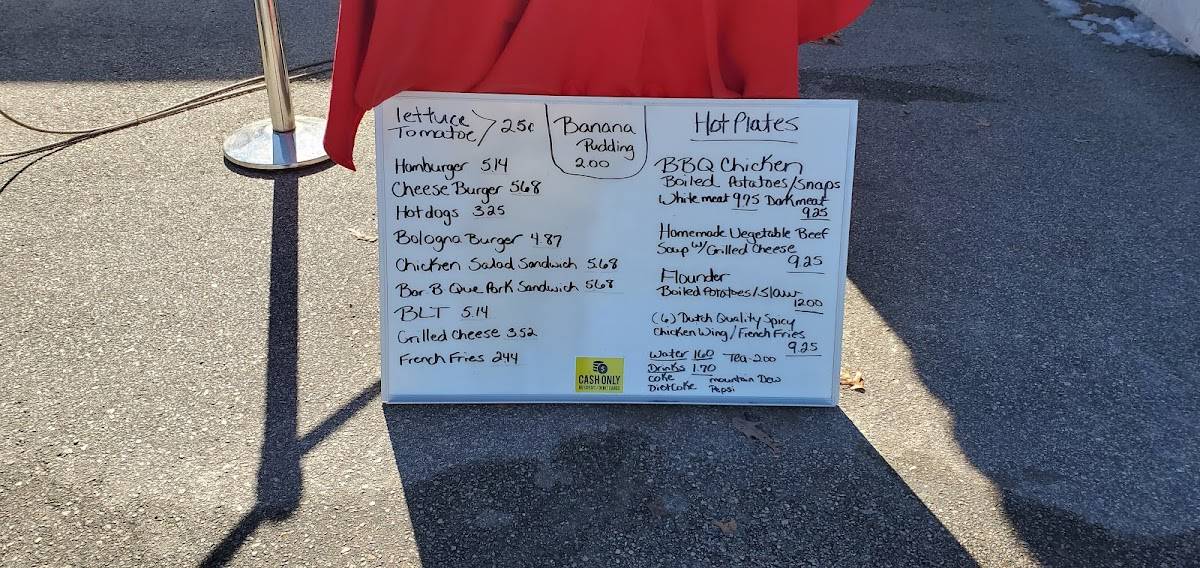 lettuce
Tomatoe > 25c
Hamburger 5.14
Cheese Burger 5.68
Hotdogs 3.25
Bologna Burger 4.87
Chicken Salad Sandwich 5.68
Bar B Que Pork Sandwich 5.68
BLT 5.14
Grilled Cheese 3.52
French Fries 2.44
Banana
Pudding
2.00
CASH ONLY
Hot Plates
BBQ Chicken
Boiled Potatoes/Snaps
White meat 9.75 Dark meat
9.25
Homemade Vegetable Beef
Soup w/ Grilled Cheese
9.25
Flounder
Boiled Potatoes/Slaw
12.00
(6) Dutch Quality Spicy
Chicken Wing/French Fries
9.25
Water 1.60 Tea-2.00
Drinks 1.70
Coke mountain Dew
Diet Coke Pepsi